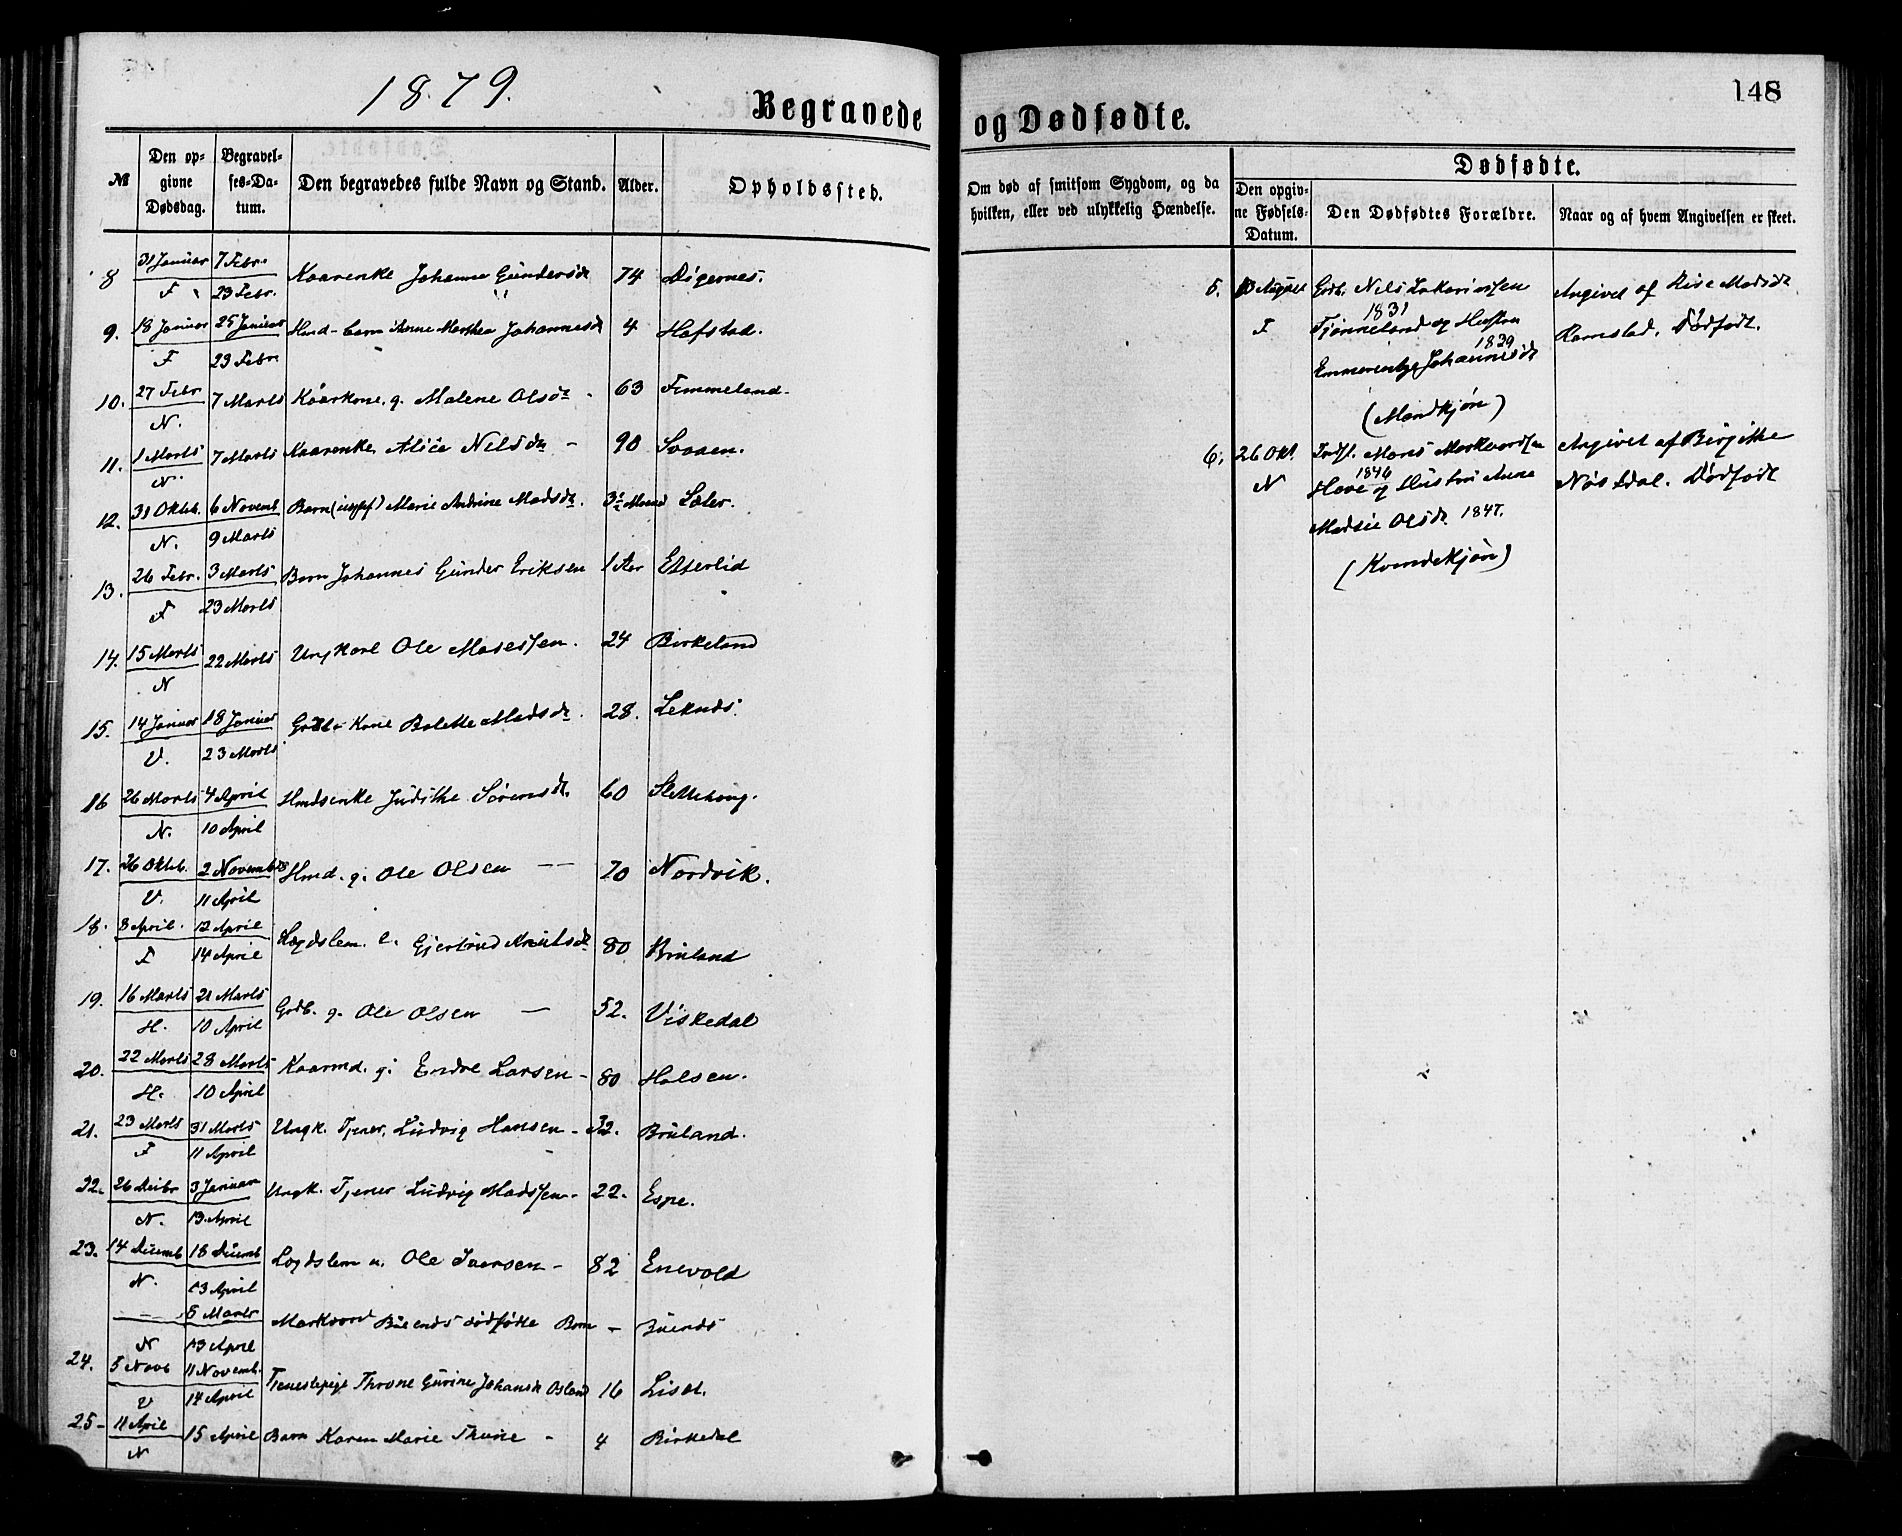 1879.
Begravede og Dødfødte.
148
№
Den opgivne Dødsdag.
Begravelses-Datum.
Den begravedes fulde Navn og Stand.
Alder.
Opholdssted.
Om død af smitsom Sygdom, og da hvilken, eller ved ulykkelig Hændelse.
Dødfødte.
Den opgivne Fødsels-Datum.
Den Dødfødtes Forældre.
Naar og af hvem Angivelsen er skeet.
8 31 Januar 7 Febr. Kaarenke Johanne Gundersdr 74 Døgernes.
F 23 Febr.
9. 18 Januar 25 Januar Hmd-barn Anne Marthea Johannesdr 4 Hafstad.
F 23 Febr
10. 27 Febr 7 Marts Kaarkone. g. Malene Olsdr 63 Fimmeland.
N.
11. 1 Marts 7 Marts Kaarenke Alice Nilsdr - 90 Svaaen.
N.
12. 31 Oktob. 6 Novemb Barn Marie Andrine Madsdr. 3½ Maaned Sæter.
N. 9 Marts
13. 26 Febr. 3 Marts Barn Johannes Gunder Eriksen 1 Aar Espelid
F 23 Marts
14. 15 Marts 22 Marts Ungkarl Ole Mosessen. 24 Birkeland
N
15. 14 Januar 18 Januar Kone Bolette Madsdr. 28. Leknes.
V. 23 Marts
16 26 Marts 4 April Hmdsenke Judithe Sørensdr. 60 Slettehaug.
N. 10 April
17. 26 Oktob. 2 Novemb Hmd. g. Ole Olsen -- 70 Nordvik.
V. 11 April
18. 8 April. 12 April Lægdslem. e. Gjertrud Knutsdr 80 Bruland
F 14 April
19. 16 Marts 21 Marts Grdb. g. Ole Olsen - 52. Viskedal
H. 10 April
20. 22 Marts 28 Marts Kaarmd. g. Endre Larsen - 80 Halsen.
H. 10 April
21. 23 Marts 31 Marts Ungk. Tjener, Ludvig Hansen - 32. Bruland.
F 11 April
22. 26 Decbr 3 Januar Ungk. Tjener Ludvig Madssen - 22. Espe.
N. 13. April
23. 14 Decemb 18 Decemb Lægdslem u. Ole Iversen - 82 Enevold
N. 13 April
- 8 Marts Markvard Buenes dødfødte Barn - Buenes
N 13 April
24. 5 Novb 11 Novemb. Tjenestepige Throne Gurine Johansdr Osland 16 Liset.
V 14 April
25 - 11 April 15 April Barn Karen Marie Thurie - 4 Birkedal
N
5. 13 August Grdb. Nils Zakariassen Angivet af Lise Madsdr
1831
F Tjønneland og Hustru Ramstad. Dødfødt.
1839
Emmerentze Johannesdr
(Mandkjøn)
6. 26 Okt. Inds. Mons Markvardsen Angivet af Birgithe
1846
N Hove og Hustru Anne Nøstdal. Dødfødt
Madsie Olsdr. 1847.
(Kvindekjøn)